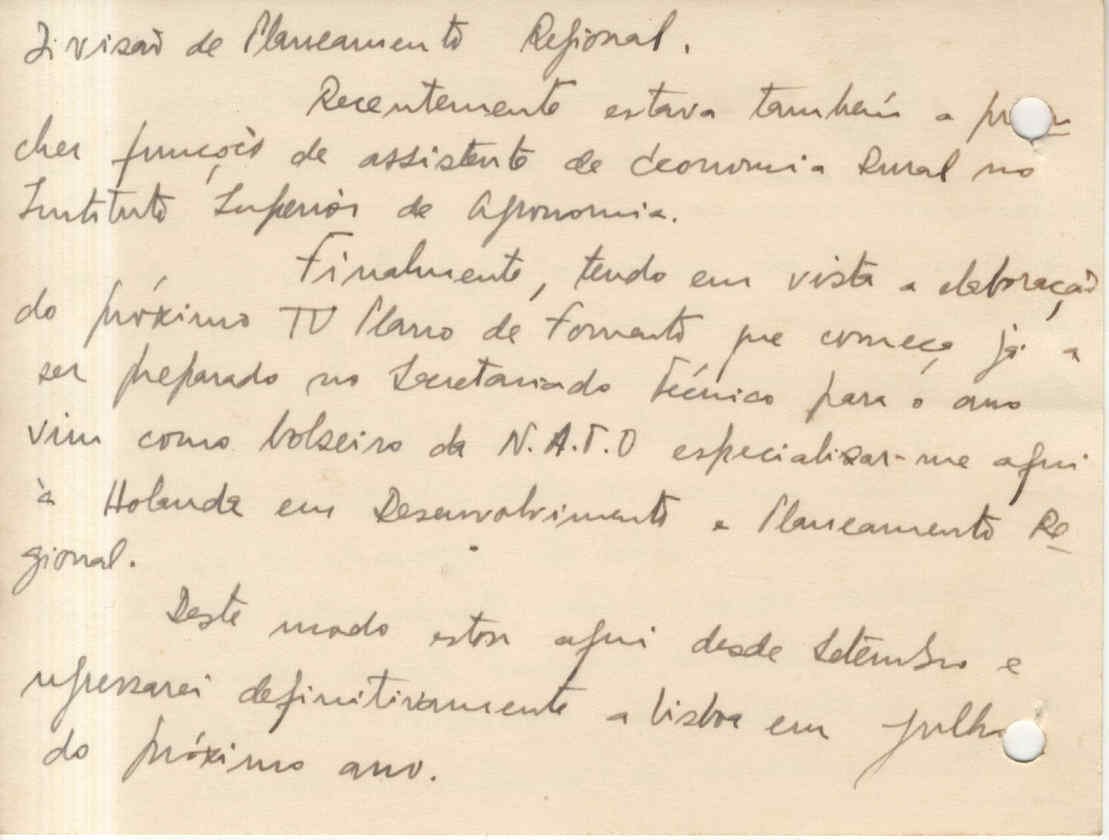 Divisão de Planeamento Regional.
Recentemente estava também a preen
cher funções de assistente de Economia Rural no
Instituto Superior de Agronomia.
Finalmente, tendo em vista a elaboração
do próximo IV Plano de Fomento que começa já a
ser preparado no Secretariado Técnico para o ano
vim como bolseiro da N.A.T.O especializar-me aqui
à Holanda em Desenvolvimento e Planeamento Re
gional.
Deste modo estou aqui desde Setembro e
regressarei definitivamente a Lisboa em Julho
do próximo ano.